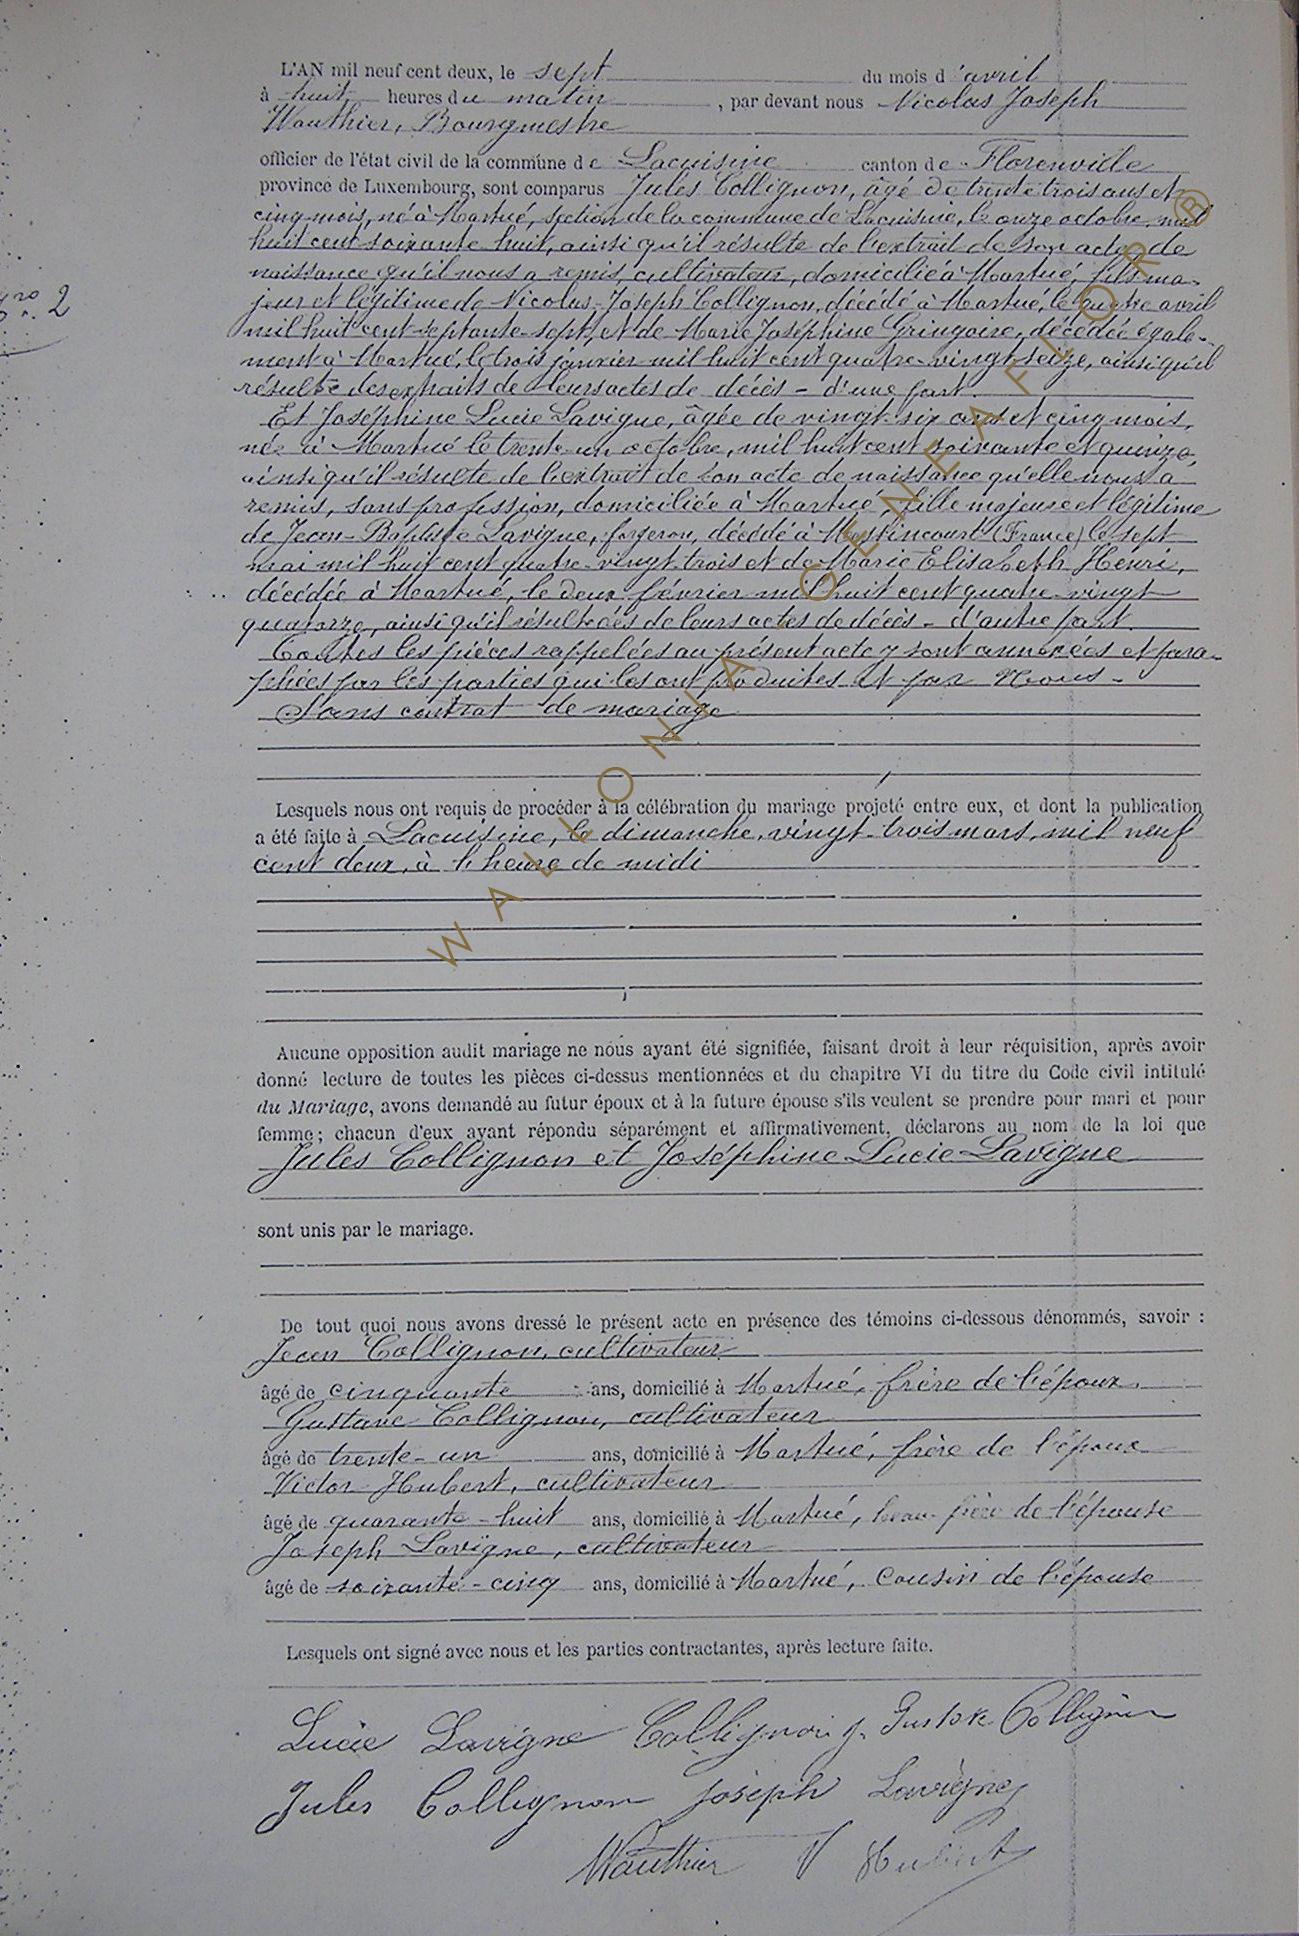 L'AN mil neuf cent deux, le sept du mois d'avril
à huit heures du matin, par devant nous Nicolas Joseph
Wauthier, Bourgmestre
officier de l'état civil de la commune de Lacuisine canton de Florenville
province de Luxembourg, sont comparus Jules Collignon, âgé de trente trois ans et
cinq mois, né à Martué, section de la commune de Lacuisine, le onze octobre mil
huit cent soixante huit, ainsi qu'il résulte de l'extrait de son acte de
naissance qu'il nous a remis, cultivateur, domicilié à Martué, fils ma-
jeur et légitime de Nicolas-Joseph Collignon, décédé à Martué, le quatre avril
mil huit cent septante-sept, et de Marie Joséphine Gringoire, décédée égale-
ment à Martué, le trois janvier mil huit cent quatre-vingt seize, ainsi qu'il
résulte des extraits de leurs actes de décès - d'une part.
Et Joséphine Lucie Lavigne, âgée de vingt-six ans et cinq mois,
née à Martué le trente-un octobre, mil huit cent soixante et quinze,
ainsi qu'il résulte de l'extrait de son acte de naissance qu'elle nous a
remis, sans profession, domiciliée à Martué, fille majeure et légitime
de Jean-Baptiste Lavigne, forgeron, décédé à (France) le sept
mai mil huit cent quatre-vingt trois et de Marie Elisabeth Henri,
décédée à Martué, le deux février mil huit cent quatre-vingt
quatorze, ainsi qu'il résulte de leurs actes de décès - d'autre part.
Toutes les pièces rappelées au présent acte y sont annexées et para-
phées par les parties qui les ont produites et par Nous -
Sans contrat de mariage
nro 2
Lesquels nous ont requis de procéder à la célébration du mariage projeté entre eux, et dont la publication
a été faite à Lacuisine, le dimanche, vingt-trois mars, mil neuf
cent deux, à l'heure de midi
Aucune opposition audit mariage ne nous ayant été signifiée, faisant droit à leur réquisition, après avoir
donné lecture de toutes les pièces ci-dessus mentionnées et du chapitre VI du titre du Code civil intitulé
du Mariage, avons demandé au futur époux et à la future épouse s'ils veulent se prendre pour mari et pour
femme; chacun d'eux ayant répondu séparément et affirmativement, déclarons au nom de la loi que
Jules Collignon et Joséphine Lucie Lavigne
sont unis par le mariage.
De tout quoi nous avons dressé le présent acte en présence des témoins ci-dessous dénommés, savoir :
Jean Collignon, cultivateur
âgé de cinquante ans, domicilié à Martué, frère de l'époux.
Gustave Collignon, cultivateur
âgé de trente-un ans, domicilié à Martué, frère de l'époux
Victor Hubert, cultivateur
âgé de quarante-huit ans, domicilié à Martué, beau-frère de l'épouse
Joseph Lavigne, cultivateur
âgé de soixante-cinq ans, domicilié à Martué, cousin de l'épouse
Lesquels ont signé avec nous et les parties contractantes, après lecture faite.
Lucie Lavigne Collignon J. Gustave Collignon
Jules Collignon Joseph Lavigne
Wauthier V Hubert
WALLONIA-GENEAFLOR ®